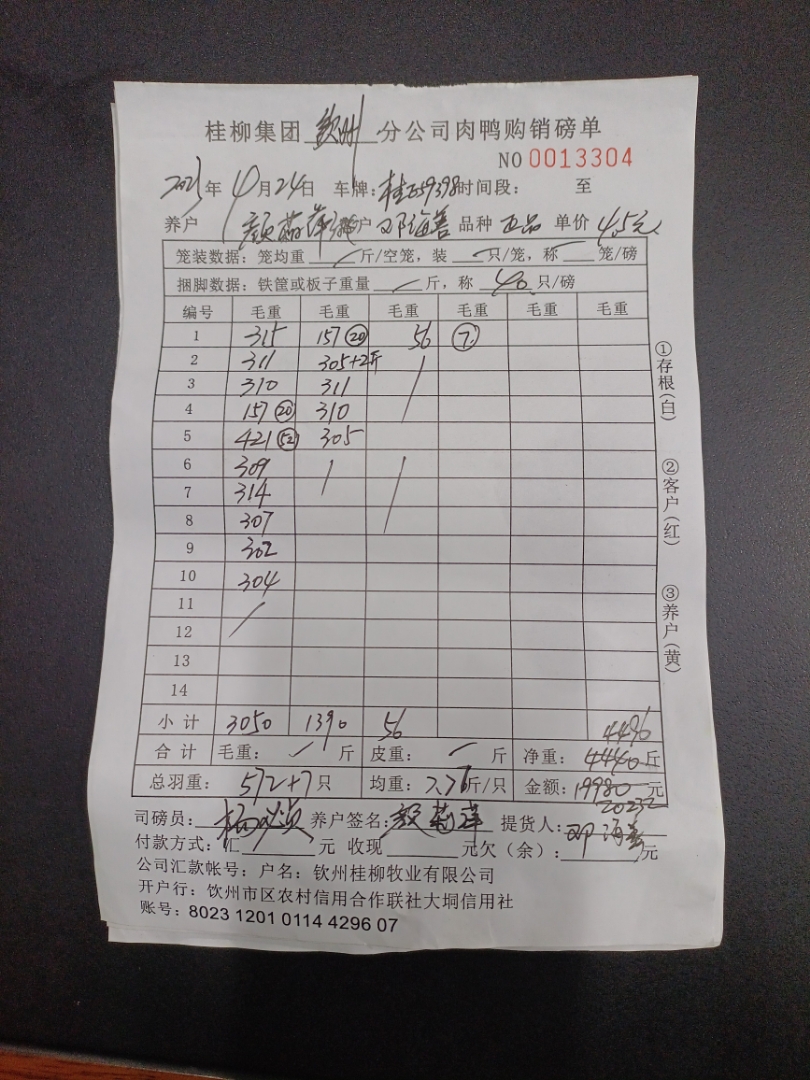 桂柳集团 钦州 分公司肉鸭购销磅单
NO 0013304
2023年10月24日 车牌：桂E59398时间段： 至
养户 颜菊萍 户 邓海善 品种 正品 单价 4.5元
笼装数据：笼均重 斤/空笼，装 只/笼，称 笼/磅
捆脚数据：铁筐或板子重量 斤，称 40 只/磅
编号 毛重 毛重 毛重 毛重 毛重 毛重
1 315 157 ⑳ 56 ⑦
2 311 305+2斤
3 310 311
4 157 ⑳ 310
5 421 52 305
6 309
7 314
8 307
9 302
10 304
11
12
13
14
小计 3050 1390 56 4496
合计 毛重： 斤 皮重： 斤 净重：4440斤
总羽重：572+7只 均重：7.76斤/只 金额：19980元
20232
司磅员： 养户签名：颜菊萍 提货人：邓海善
付款方式：汇 元 收现 元欠（余）： 元
公司汇款帐号：户名：钦州桂柳牧业有限公司
开户行：钦州市区农村信用合作联社大垌信用社
账号：8023 1201 0114 4296 07
①存根(白)
②客户(红)
③养户(黄)